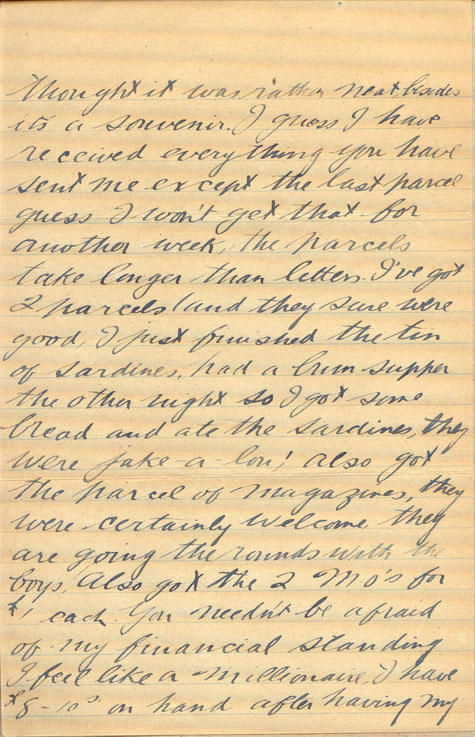 thought it was rather neat besides
it's a souvenir. I guess I have
received everything you have
sent me except the last parcel
guess I won't get that for
another week, the parcels
take longer than letters. I've got
2 parcels (and they sure were
good, I just finished the tin
of sardines, had a bum supper
the other night so I got some
bread and ate the sardines, they
were jake-a-loo! also got
the parcel of magazines, they
were certainly welcome they
are going the rounds with the
boys. Also got the 2 M.O's for
$1 each. You needn't be afraid
of my financial standing
I feel like a millionaire, I have
$8-10⁰ on hand after having my